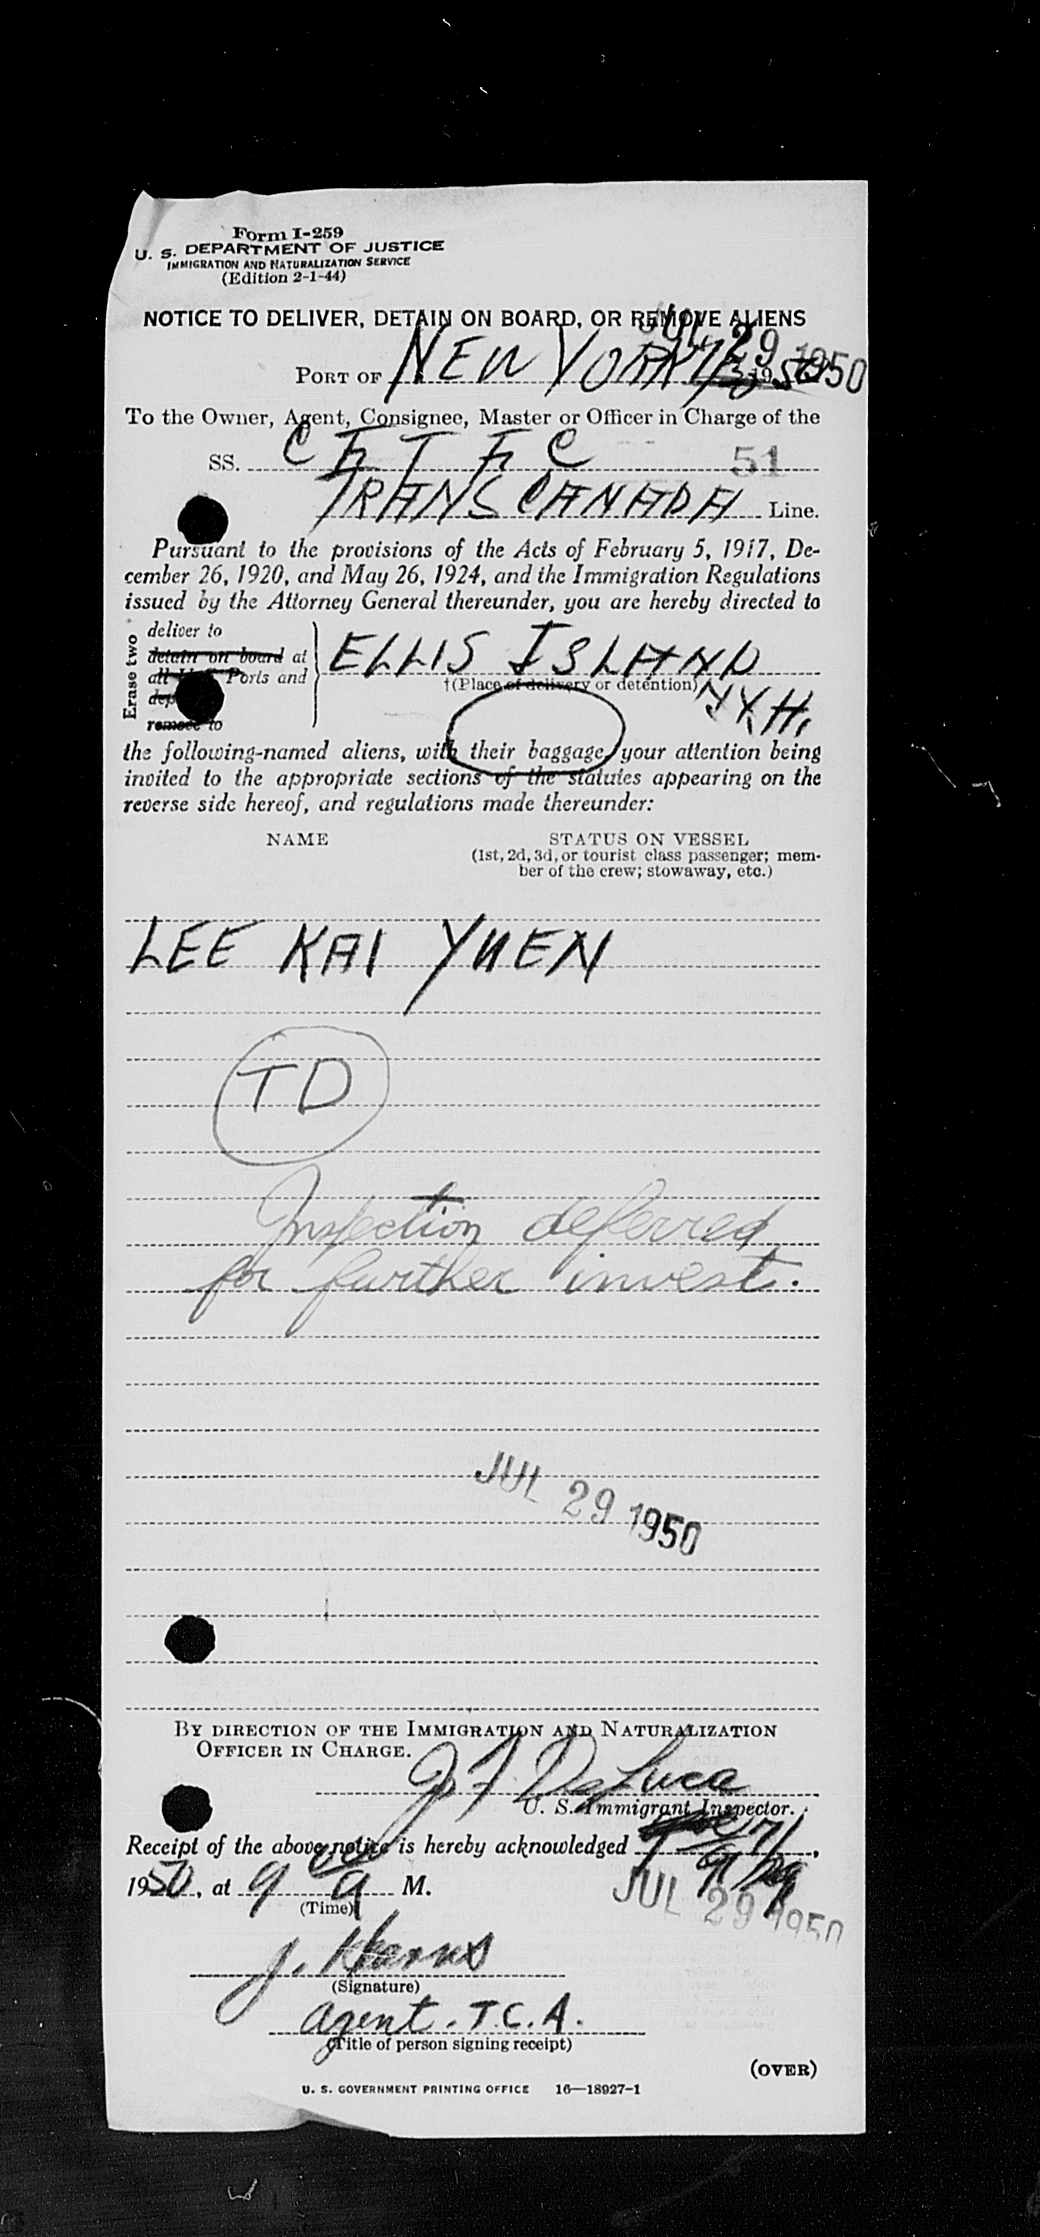 Form I-259
U. S. DEPARTMENT OF JUSTICE
IMMIGRATION AND NATURALIZATION SERVICE
(Edition 2-1-44)
NOTICE TO DELIVER, DETAIN ON BOARD, OR REMOVE ALIENS
JUL 29 1950
PORT OF NEW YORK 19 50
To the Owner, Agent, Consignee, Master or Officer in Charge of the
SS. C F T F C 51
TRANS CANADA Line.
Pursuant to the provisions of the Acts of February 5, 1917, De-
cember 26, 1920, and May 26, 1924, and the Immigration Regulations
issued by the Attorney General thereunder, you are hereby directed to
Erase two
deliver to
detain on board at
all U.S. Ports and
remove to
ELLIS ISLAND
†(Place of delivery or detention)
N.Y.H.
the following-named aliens, with their baggage, your attention being
invited to the appropriate sections of the statutes appearing on the
reverse side hereof, and regulations made thereunder:
NAME STATUS ON VESSEL
(1st, 2d, 3d, or tourist class passenger; mem-
ber of the crew; stowaway, etc.)
LEE KAI YUEN
TD
Inspection deferred
for further invest.
JUL 29 1950
BY DIRECTION OF THE IMMIGRATION AND NATURALIZATION
OFFICER IN CHARGE.
J F DeLuca
U. S. Immigrant Inspector.
Receipt of the above notice is hereby acknowledged
1950, at 9 a M.
(Time)
JUL 29 1950
(Signature)
Agent. T.C.A.
(Title of person signing receipt)
(OVER)
U. S. GOVERNMENT PRINTING OFFICE 16—18927-1